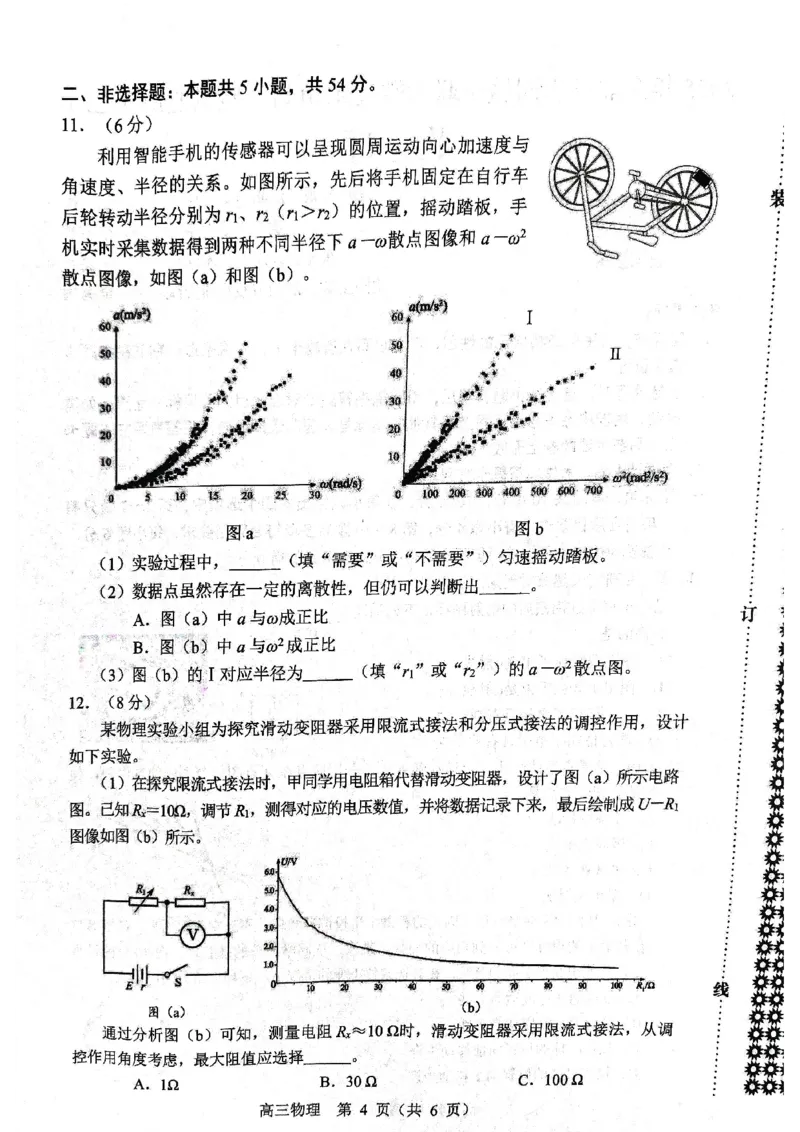 二、非选择题：本题共5小题，共54分。
11．（6分）
利用智能手机的传感器可以呈现圆周运动向心加速度与
角速度、半径的关系。如图所示，先后将手机固定在自行车
后轮转动半径分别为r₁、r₂（r₁＞r₂）的位置，摇动踏板，手
机实时采集数据得到两种不同半径下a－ω散点图像和a－ω²
散点图像，如图（a）和图（b）。
a(m/s²)
60
50
40
30
20
10
0 5 10 15 20 25 30
ω(rad/s)
图a
a(m/s²)
60
50
40
30
20
10
0 100 200 300 400 500 600 700
ω²(rad²/s²)
I
II
图b
（1）实验过程中，______（填“需要”或“不需要”）匀速摇动踏板。
（2）数据点虽然存在一定的离散性，但仍可以判断出______。
A．图（a）中a与ω成正比
B．图（b）中a与ω²成正比
（3）图（b）的Ⅰ对应半径为______（填“r₁”或“r₂”）的a－ω²散点图。
12．（8分）
某物理实验小组为探究滑动变阻器采用限流式接法和分压式接法的调控作用，设计
如下实验。
（1）在探究限流式接法时，甲同学用电阻箱代替滑动变阻器，设计了图（a）所示电路
图。已知Rₓ＝10Ω，调节R₁，测得对应的电压数值，并将数据记录下来，最后绘制成U－R₁
图像如图（b）所示。
R₁ Rₓ
V
E r S
图（a）
U/V
6.0
5.0
4.0
3.0
2.0
1.0
0 10 20 30 40 50 60 70 80 90 100 R₁/Ω
（b）
通过分析图（b）可知，测量电阻Rₓ≈10 Ω时，滑动变阻器采用限流式接法，从调
控作用角度考虑，最大阻值应选择______。
A．1Ω B．30 Ω C．100 Ω
高三物理 第 4 页（共 6 页）
装
订
线